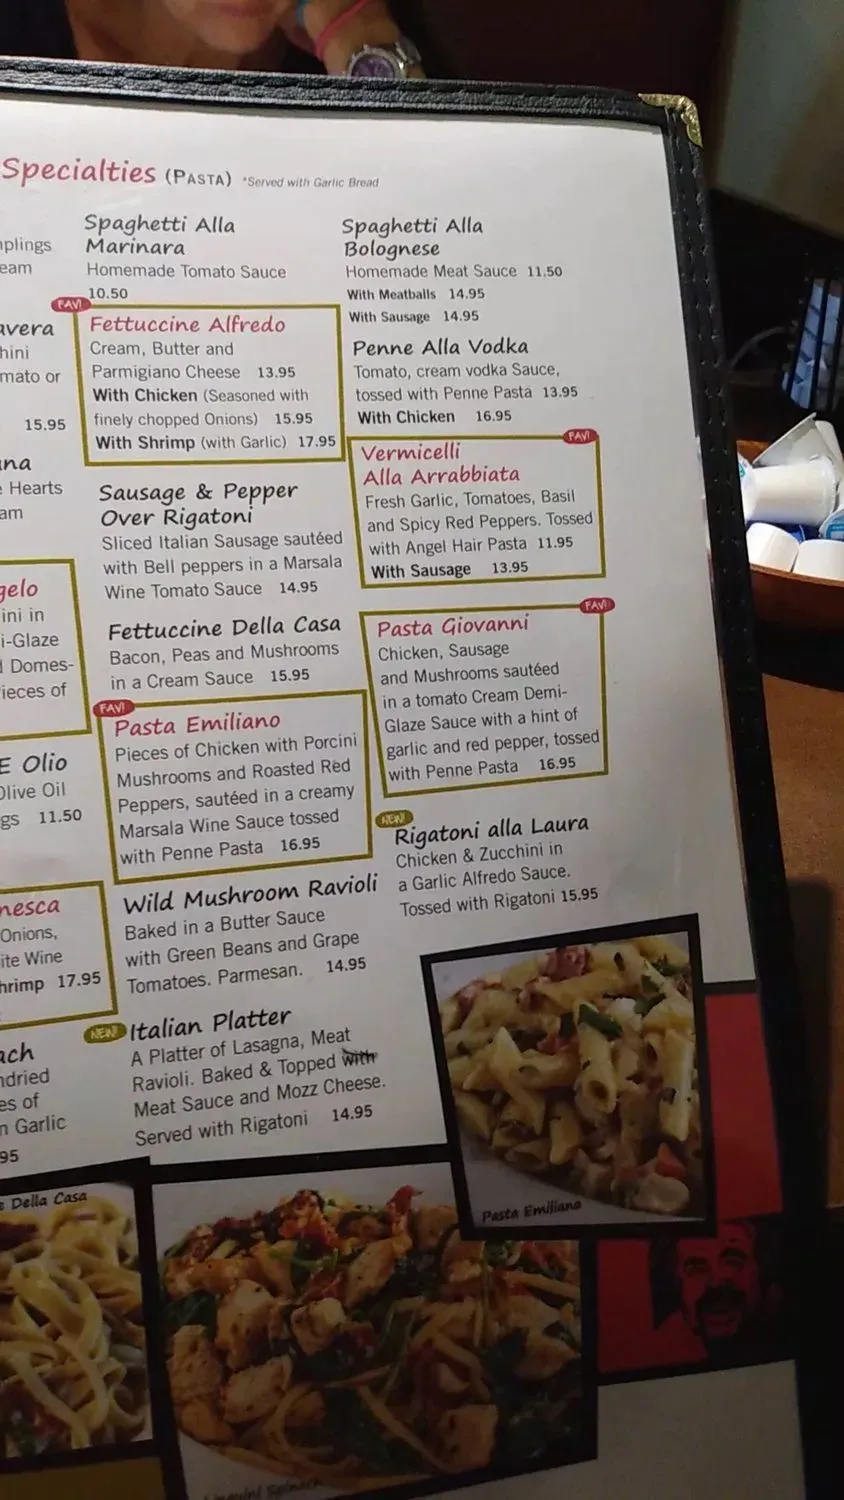 Specialties (PASTA) *Served with Garlic Bread
eam
avera
hini
mato or
15.95
na
Hearts
am
gelo
ini in
i-Glaze
Domes-
ieces of
E Olio
Olive Oil
gs 11.50
nesca
Onions,
ite Wine
hrimp 17.95
ach
ndried
es of
n Garlic
95
Spaghetti Alla
Marinara
Homemade Tomato Sauce
10.50
FAV!
Fettuccine Alfredo
Cream, Butter and
Parmigiano Cheese 13.95
With Chicken (Seasoned with
finely chopped Onions) 15.95
With Shrimp (with Garlic) 17.95
Sausage & Pepper
Over Rigatoni
Sliced Italian Sausage sautéed
with Bell peppers in a Marsala
Wine Tomato Sauce 14.95
Fettuccine Della Casa
Bacon, Peas and Mushrooms
in a Cream Sauce 15.95
FAV!
Pasta Emiliano
Pieces of Chicken with Porcini
Mushrooms and Roasted Red
Peppers, sautéed in a creamy
Marsala Wine Sauce tossed
with Penne Pasta 16.95
Wild Mushroom Ravioli
Baked in a Butter Sauce
with Green Beans and Grape
Tomatoes. Parmesan. 14.95
NEW!
Italian Platter
A Platter of Lasagna, Meat
Ravioli. Baked & Topped with
Meat Sauce and Mozz Cheese.
Served with Rigatoni 14.95
Spaghetti Alla
Bolognese
Homemade Meat Sauce 11.50
With Meatballs 14.95
With Sausage 14.95
Penne Alla Vodka
Tomato, cream vodka Sauce,
tossed with Penne Pasta 13.95
With Chicken 16.95
FAV!
Vermicelli
Alla Arrabbiata
Fresh Garlic, Tomatoes, Basil
and Spicy Red Peppers. Tossed
with Angel Hair Pasta 11.95
With Sausage 13.95
FAV!
Pasta Giovanni
Chicken, Sausage
and Mushrooms sautéed
in a tomato Cream Demi-
Glaze Sauce with a hint of
garlic and red pepper, tossed
with Penne Pasta 16.95
NEW!
Rigatoni alla Laura
Chicken & Zucchini in
a Garlic Alfredo Sauce.
Tossed with Rigatoni 15.95
Pasta Emiliano
Della Casa